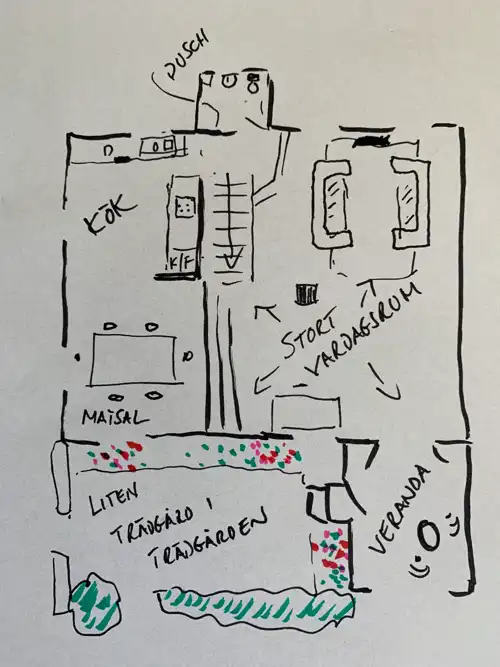 DUSCH
KÖK
K/F
STORT
VARDAGSRUM
MATSAL
LITEN
TRÄDGÅRD I
TRÄDGÅRDEN
VERANDA